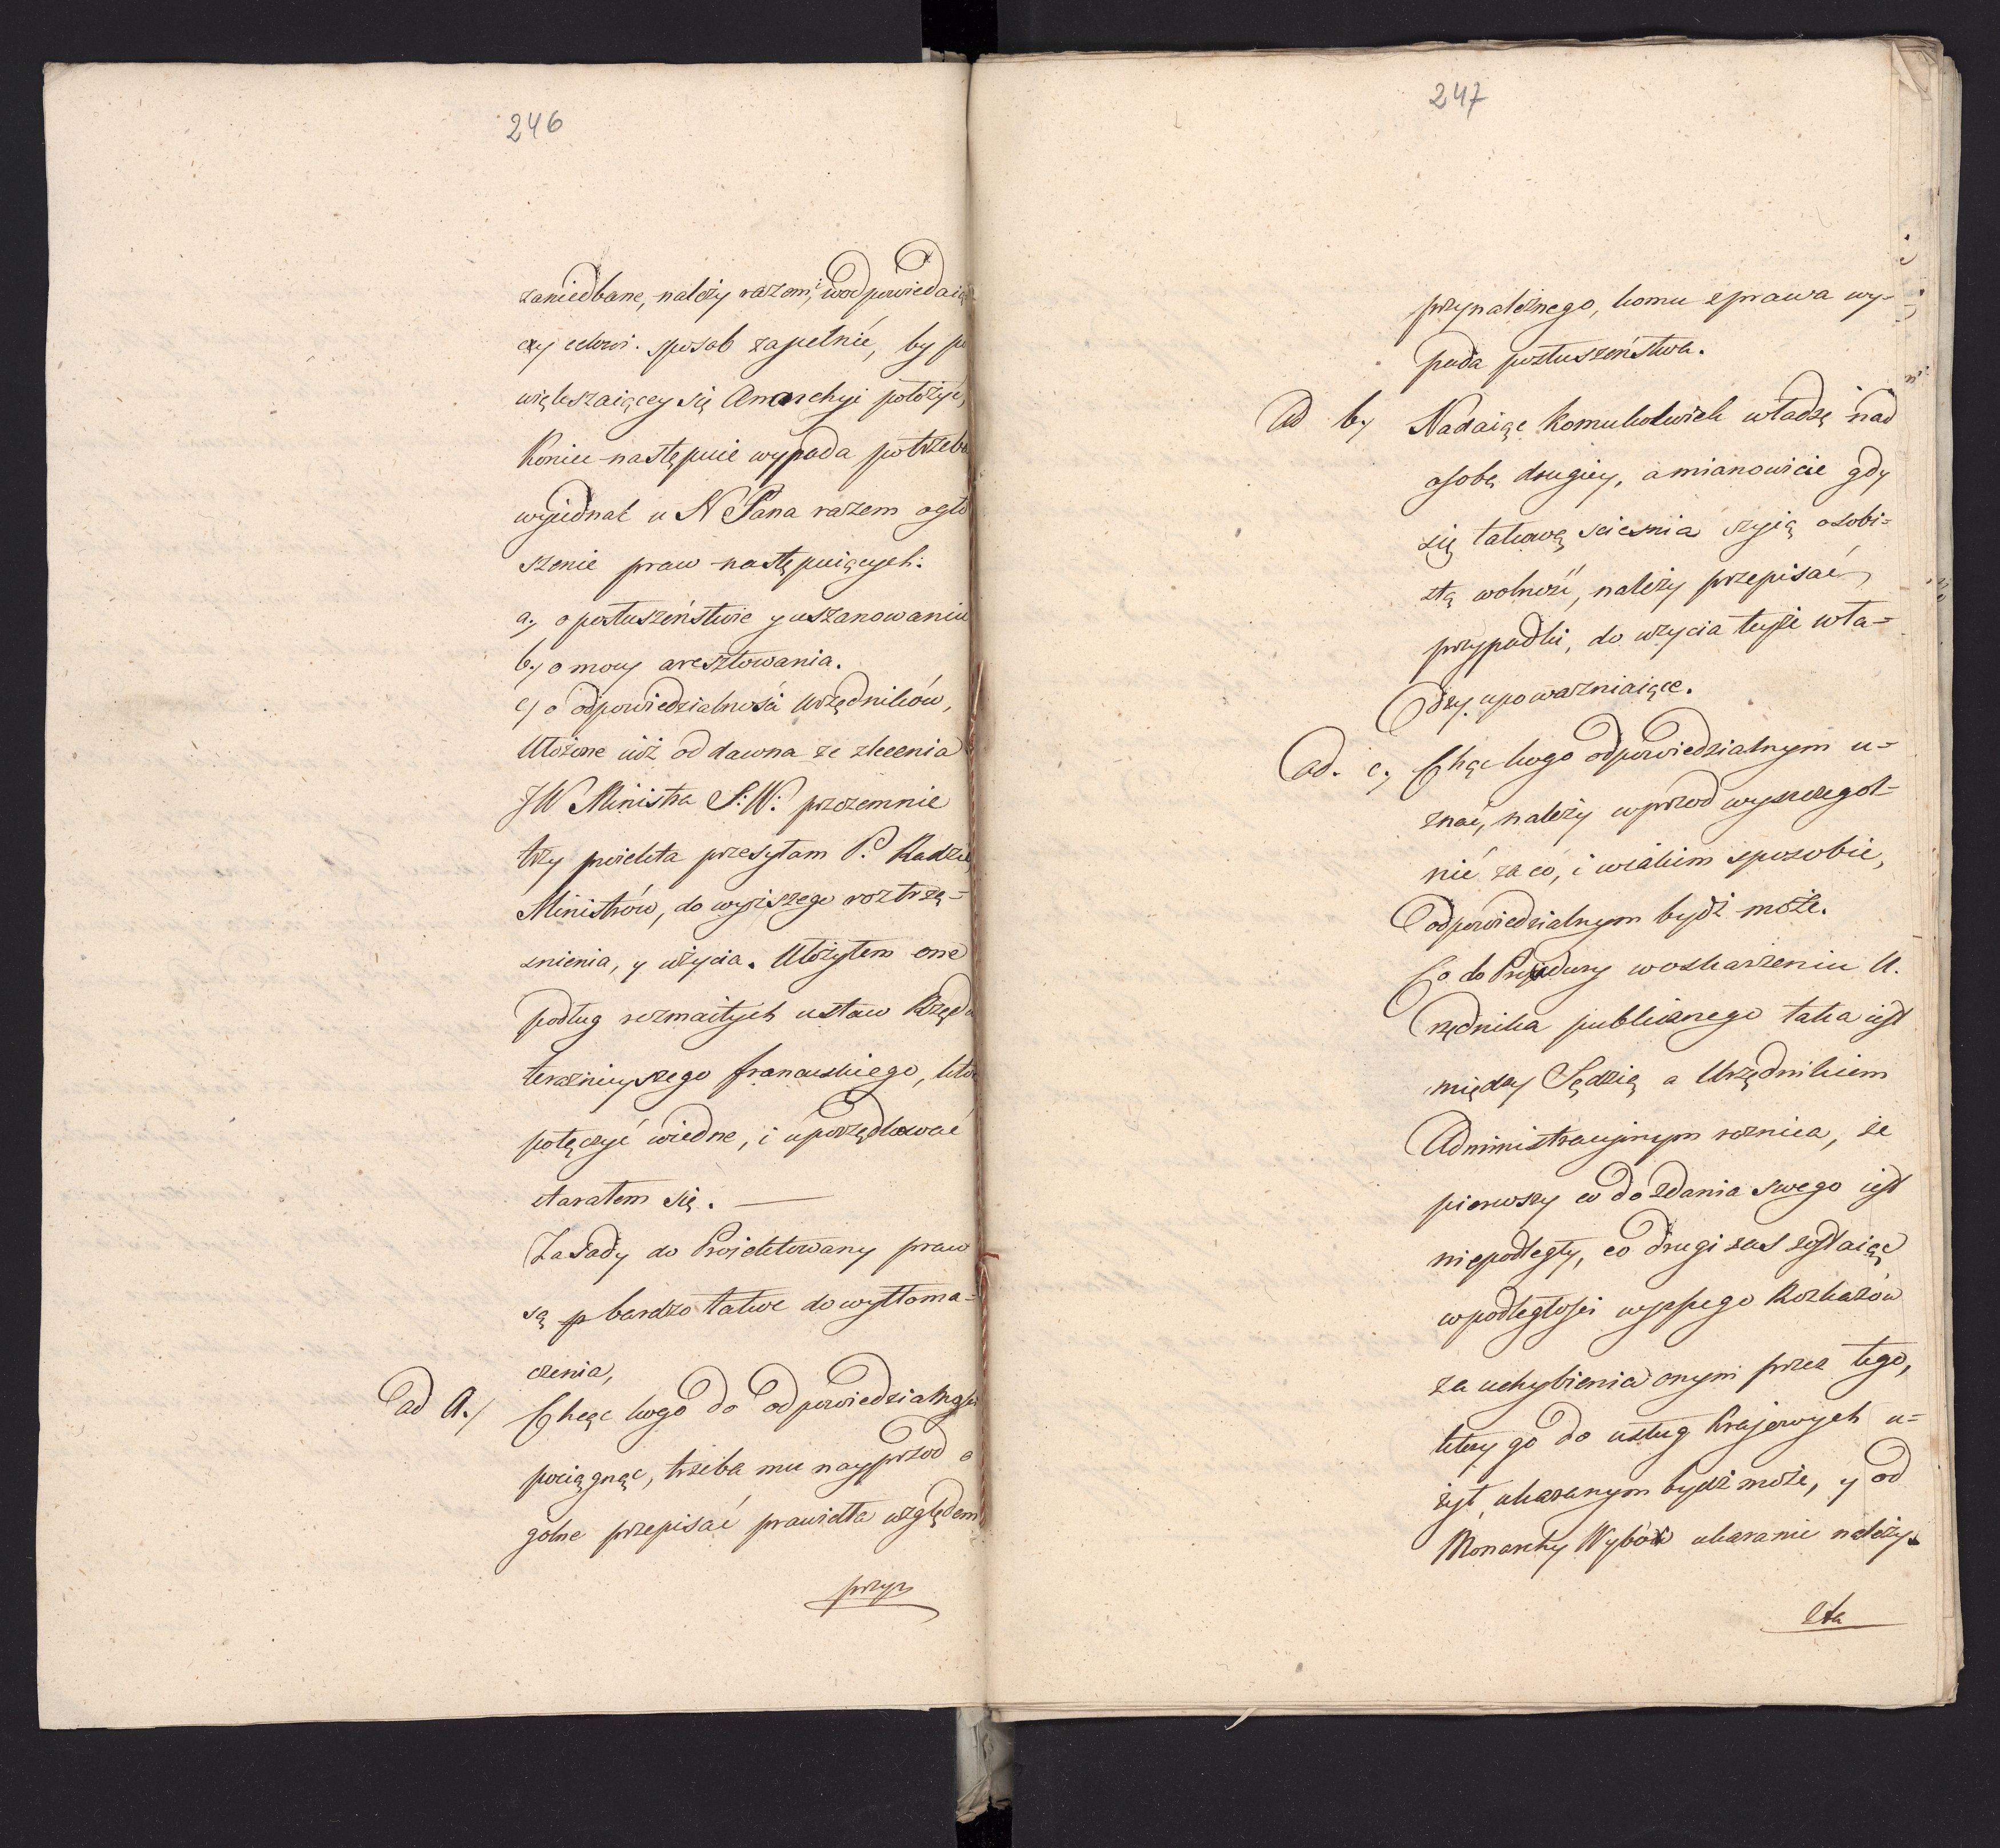 246
zaniedbane, należy razem, i wodpowiedaią
cy celowi sposob zapełnić, by po
większaiącey się Anarchyi położyć,
Koniec następuie wypada potrzeba
wyiednać u N Pana razem ogło
szenie praw następuiących:
a., o posłuszeństwie y uszanowaniu
b., o mocy aresztowania.
c, o odpowiedzialności Urzędników,
Ułożone iuż od dawna ze zlecenia
JW Ministra S: W: przezemnie
trzy proiekta przesyłam P. Radzie,
Ministrów, do wyższego roztrzą-
snienia, y użycia. Ułożyłem one
podług rozmaitych ustaw Rzędu
teraznieyszego francuskiego, któr
połączyć wiedne, i uporządkować
starałem się. —
Zasady do Proiektowany praw
są p bardzo łatwe do wytłoma-
czenia,
ad A./ Chcąc kogo do odpowiedzialności
pociągnąć, trzeba mu nayprzod o
golne przepisać prawidła względem
przy
247
przynależnego, komu z prawa wy-
pada posłuszeństwa.
Ad b., Nadaiąc komukolwiek władzę nad
osobą drugiey, a mianowicie gdy
się takową sciesnia czyią osobi-
stą wolność, należy przepisać
przypadki, do użycia teyże wła-
dzy upoważniaiące.
Ad. c., Chcąc kogo odpowiedzialnym u-
znać, należy wprzod wyszczegol-
nić za co, i wiakim sposobie,
odpowiedzialnym bydź może.
Co do Procedury woskarzeniu U.
rzędnika publicznego taka iest
między Sędzią a Urzędnikiem
Administracyinym roznica, że
pierwszy co do zdania swego iest
niepodległy, co drugi zaś zostaiąc
wpodległości wyższego Rozkazów
za uchybienia onym przez tego,
który go do usług Krajowych u-
żył, ukaranym bydź może, y od
Monarchy Wybór ukaranie należy.
Sta